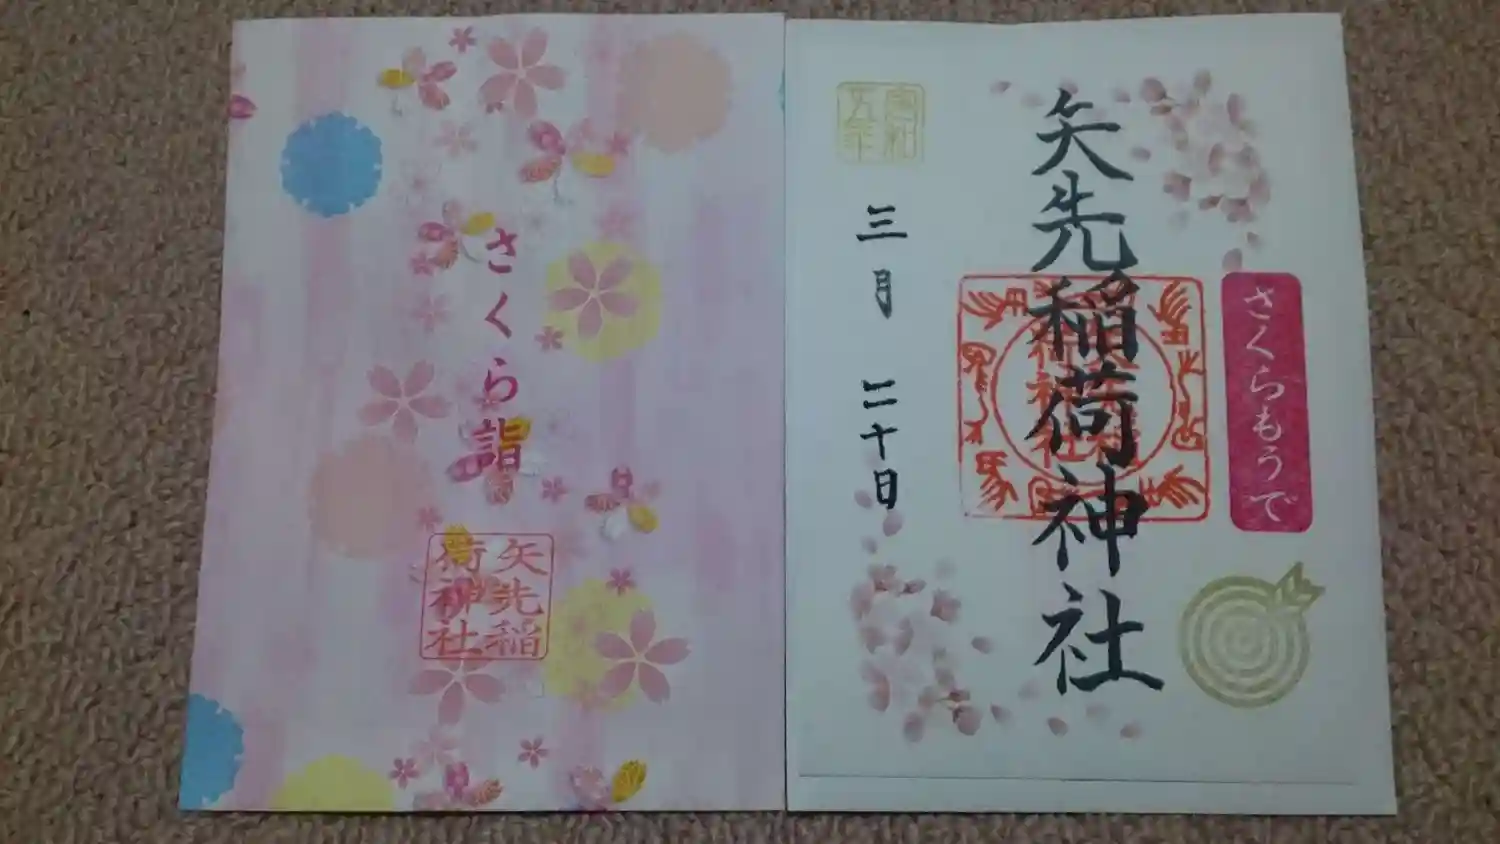 さくら詣
矢先稲
荷神社
さくらもうで
矢先稲荷神社
令和
五年
三月二十日